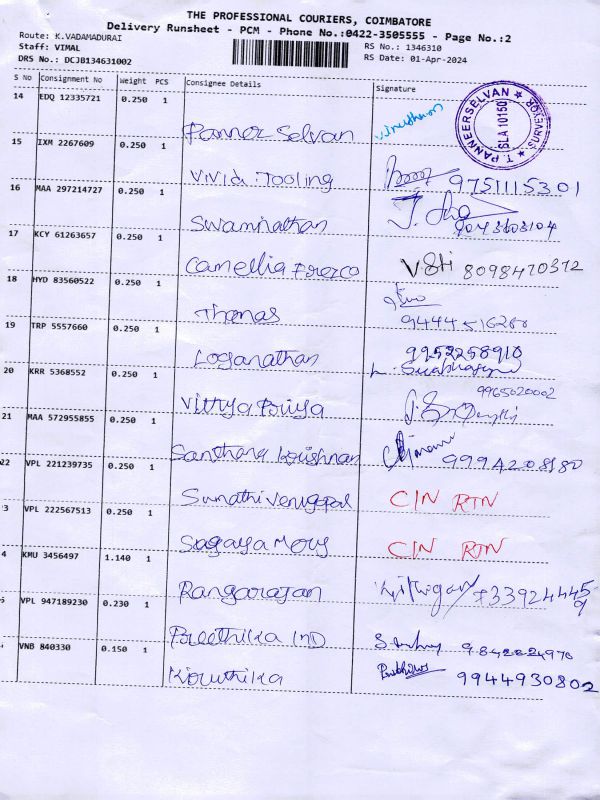 THE PROFESSIONAL COURIERS, COIMBATORE
Delivery Runsheet - PCM - Phone No.:0422-3505555 - Page No.:2
Route: K.VADAMADURAI
RS No.: 1346310
Staff: VIMAL
RS Date: 01-Apr-2024
DRS No.: DCJB134631002
S No Consignment No Weight PCS Consignee Details Signature
14 EDQ 12335721 0.250 1 Panner Selvan
T. PANNEERSELVAN ★ SURVEYOR ★
SLA 10150
15 IXM 2267609 0.250 1 Vivid Tooling 9751115301
16 MAA 297214727 0.250 1 Swaminathan
17 KCY 61263657 0.250 1 Camellia Frezco 8098470372
18 HYD 83560522 0.250 1 Thomas 9444516280
19 TRP 5557660 0.250 1 Loganathan 9952258910
20 KRR 5368552 0.250 1 Vithya Priya 9965020002
21 MAA 572955855 0.250 1 Santhana krishnan 9994208180
22 VPL 221239735 0.250 1 Sumathi Venugopal C/N RTN
3 VPL 222567513 0.250 1 Sagaya Mery C/N RTN
4 KMU 3456497 1.140 1 Rangarajan
5 VPL 947189230 0.230 1 Preethika IND
VNB 840330 0.150 1 Kiruthika 9944930802